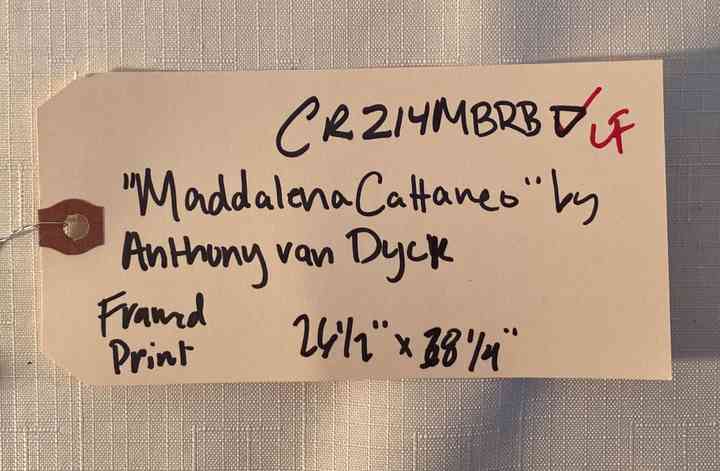 CR214MBRB LF
"Maddalena Cattaneo" by
Anthony van Dyck
Framed
Print 26 1/2" x 38 1/4"